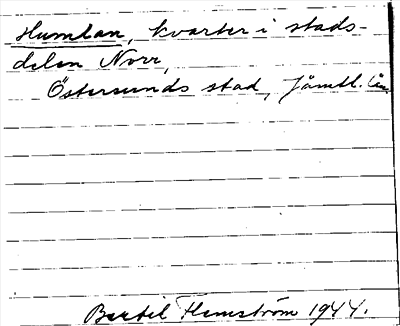 Humlan, kvarter i stads-
delen Norr,
Östersunds stad, Jämtl. län
Bertil Flemström 1944.